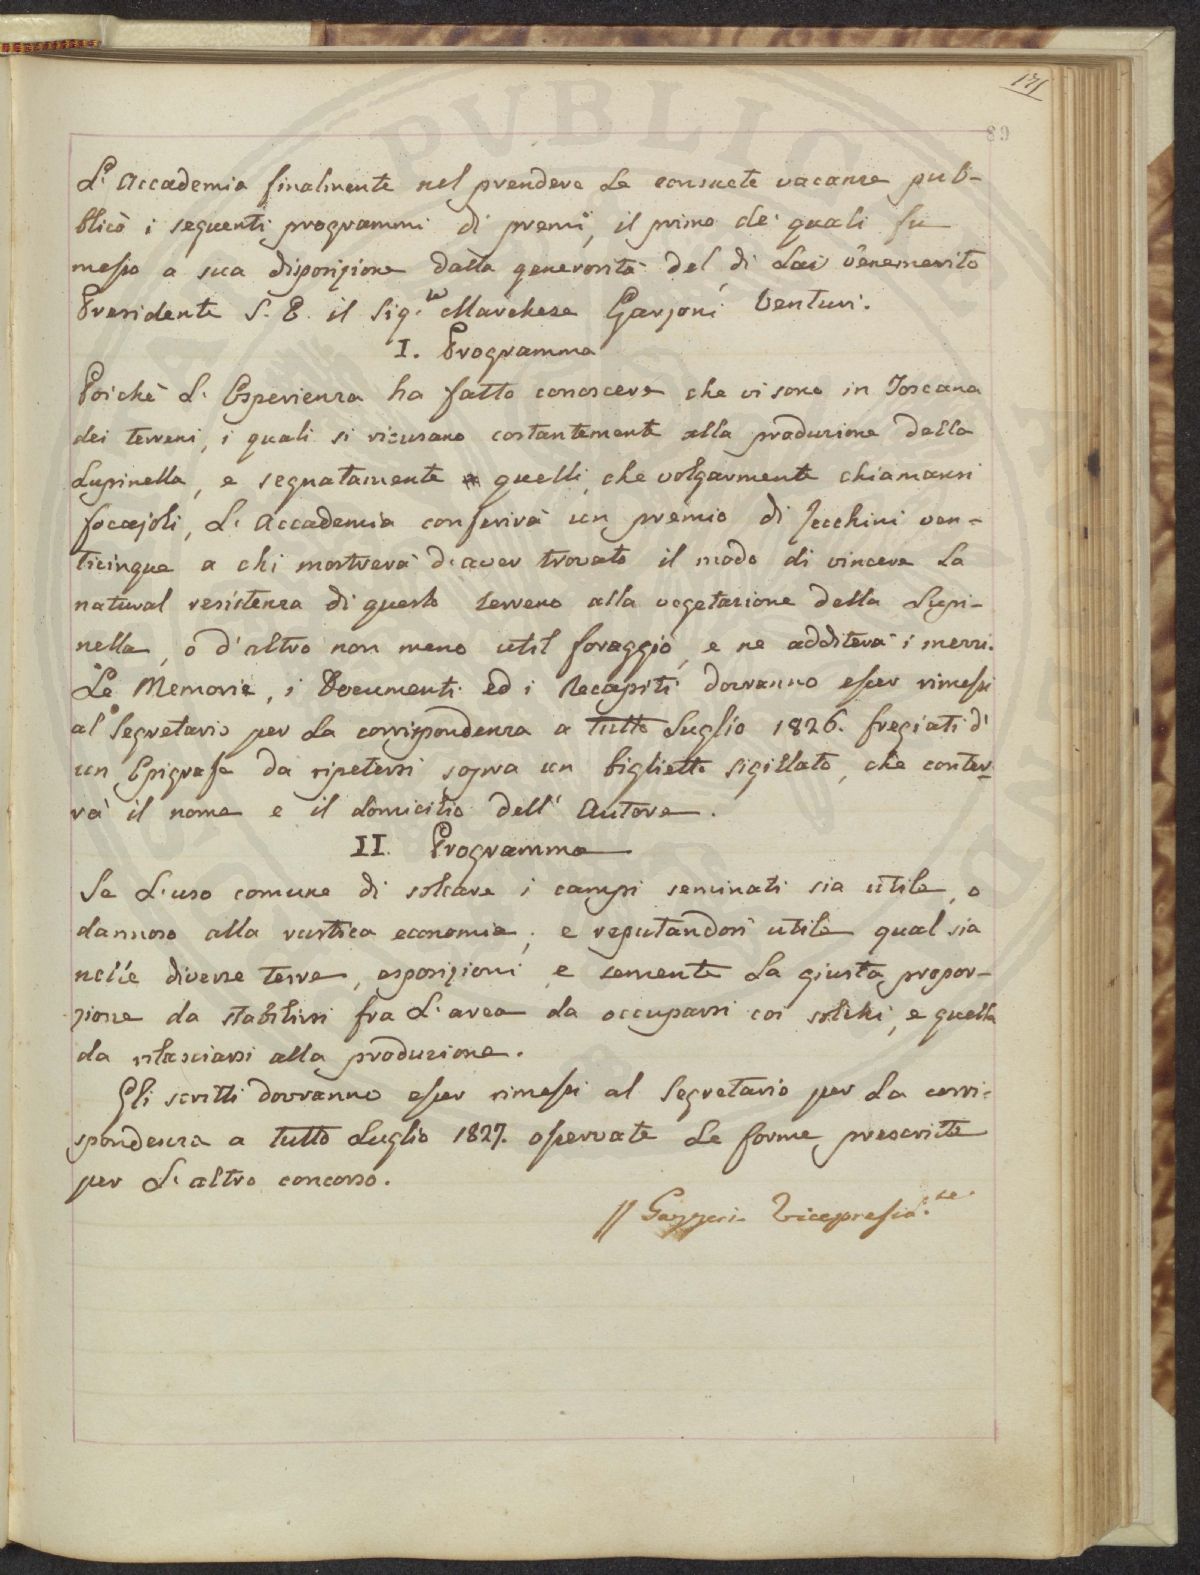 171
89
L'Accademia finalmente nel prendere le consuete vacanze pub-
blicò i seguenti programmi di premi, il primo de' quali fu
messo a sua disposizione dalla generosità del di Lei benemerito
Presidente S. E. il Sig.re Marchese Garzoni Venturi.
I. Programma
Poichè L'Esperienza ha fatto conoscere che vi sono in Toscana
dei terreni, i quali si ricusano costantemente alla produzione della
Lupinella, e segnatamente quelli, che volgarmente chiamansi
focajoli, L'Accademia conferirà un premio di Zecchini ven-
ticinque a chi mostrerà d'aver trovato il modo di vincere la
natural resistenza di questo terreno alla vegetazione della Lupi-
nella, o d'altro non meno util foraggio, e ne additerà i mezzi.
Le Memorie, i Documenti ed i Recapiti dovranno esser rimessi
al Segretario per la corrispondenza a tutto Luglio 1826. fregiati d'
un Epigrafe da ripetersi sopra un biglietto sigillato, che conter-
rà il nome e il domicilio dell'Autore.
II. Programma
Se L'uso comune di solcare i campi seminati sia utile, o
dannoso alla rustica economia; e reputandosi utile qual sia
nelle diverse terre, esposizioni, e semente la giusta propor-
zione da stabilirsi fra L'area da occuparsi coi solchi, e quella
da rilasciarsi alla produzione.
Gli scritti dovranno esser rimessi al Segretario per la corri-
spondenza a tutto Luglio 1827. osservate le forme prescritte
per L'altro concorso.
Gazzeri Vicepresid.te
PVBLIC